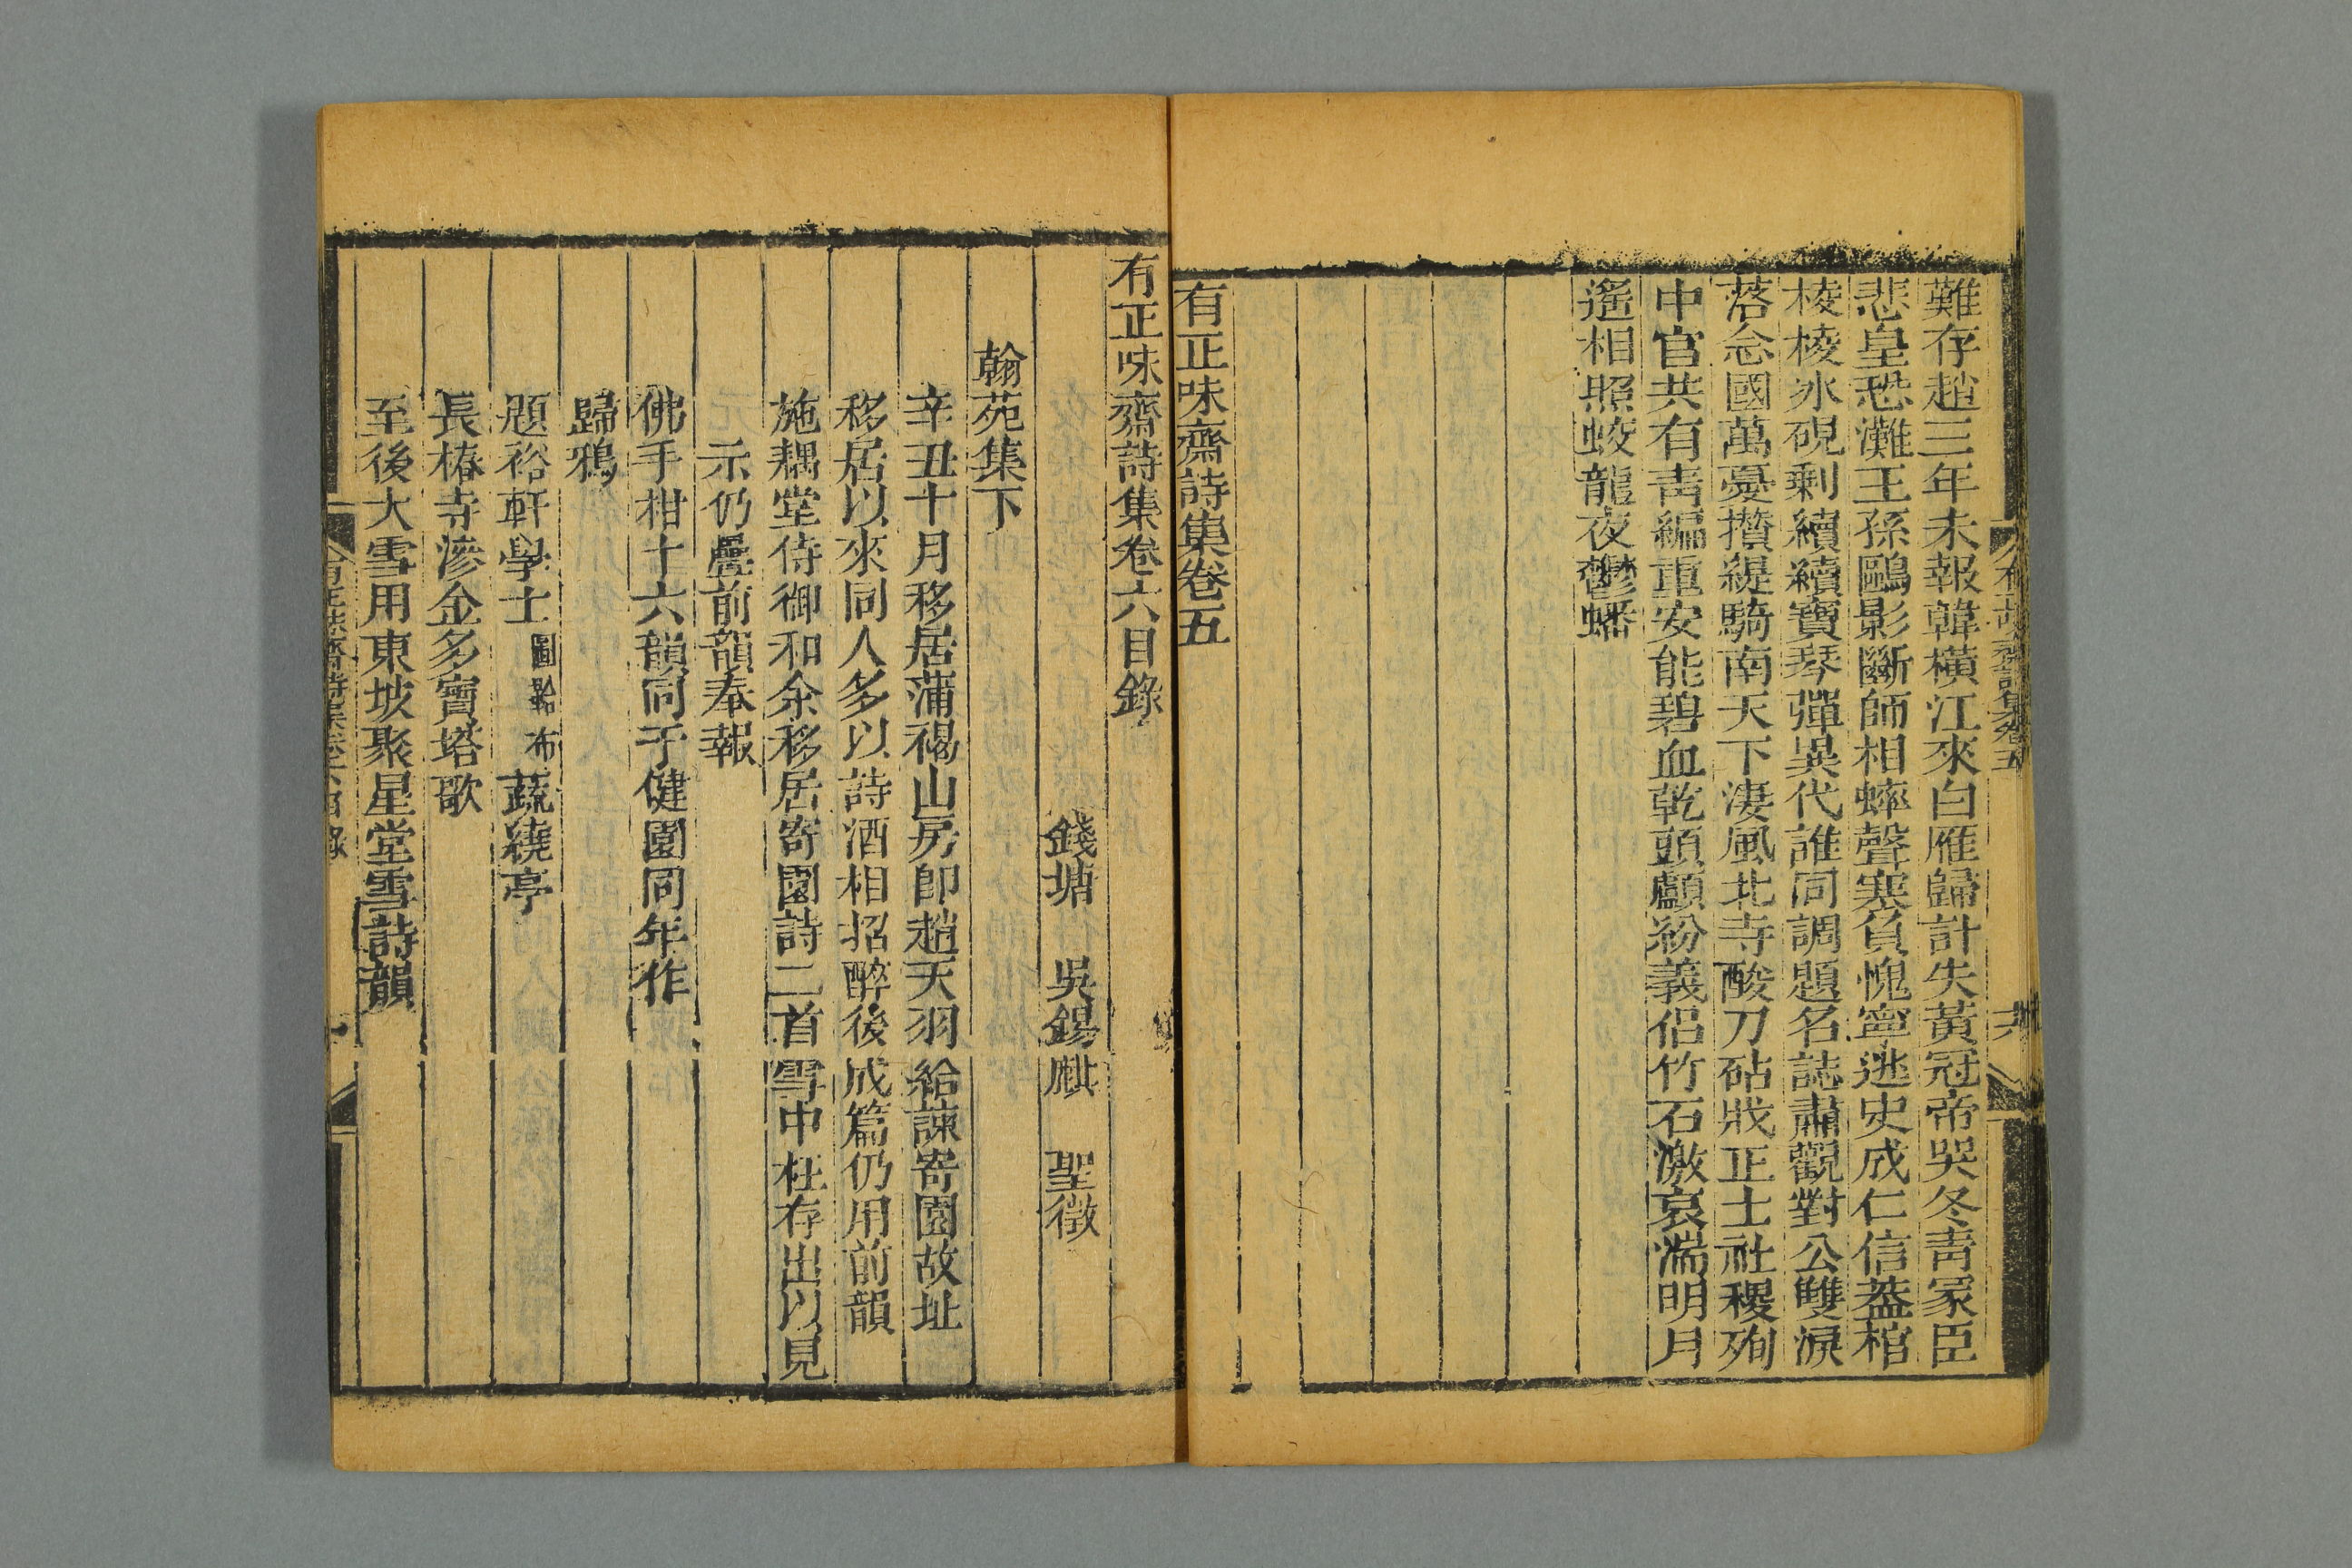 難存趙三年未報韓橫江來白雁歸計失黃冠帝哭冬靑冢臣
悲皇恐灘王孫鷗影斷師相蟀聲寒負愧寧逃史成仁信蓋棺
棱棱冰硯剩續續寶琴彈異代誰同調題名誌肅觀對公雙淚
落念國萬憂攢緹騎南天下淒風北寺酸刀砧戕正士社稷殉
中官共有靑編重安能碧血乾頭顱紛義侶竹石激哀湍明月
遙相照蛟龍夜鬱蟠
有正味齋詩集卷五
有正味齋詩集卷六目錄
錢塘 吳錫麒 聖徵
翰苑集下
辛丑十月移居蒲褐山房卽趙天羽給諫寄園故址
移居以來同人多以詩酒相招醉後成篇仍用前韻
施耦堂侍御和余移居寄園詩二首雪中枉存出以見
示仍疊前韻奉報
佛手柑十六韻同于健園同年作
歸鴉
題裕軒學士圖鞳布蔬繞亭
長椿寺滲金多寶塔歌
至後大雪用東坡聚星堂雪詩韻